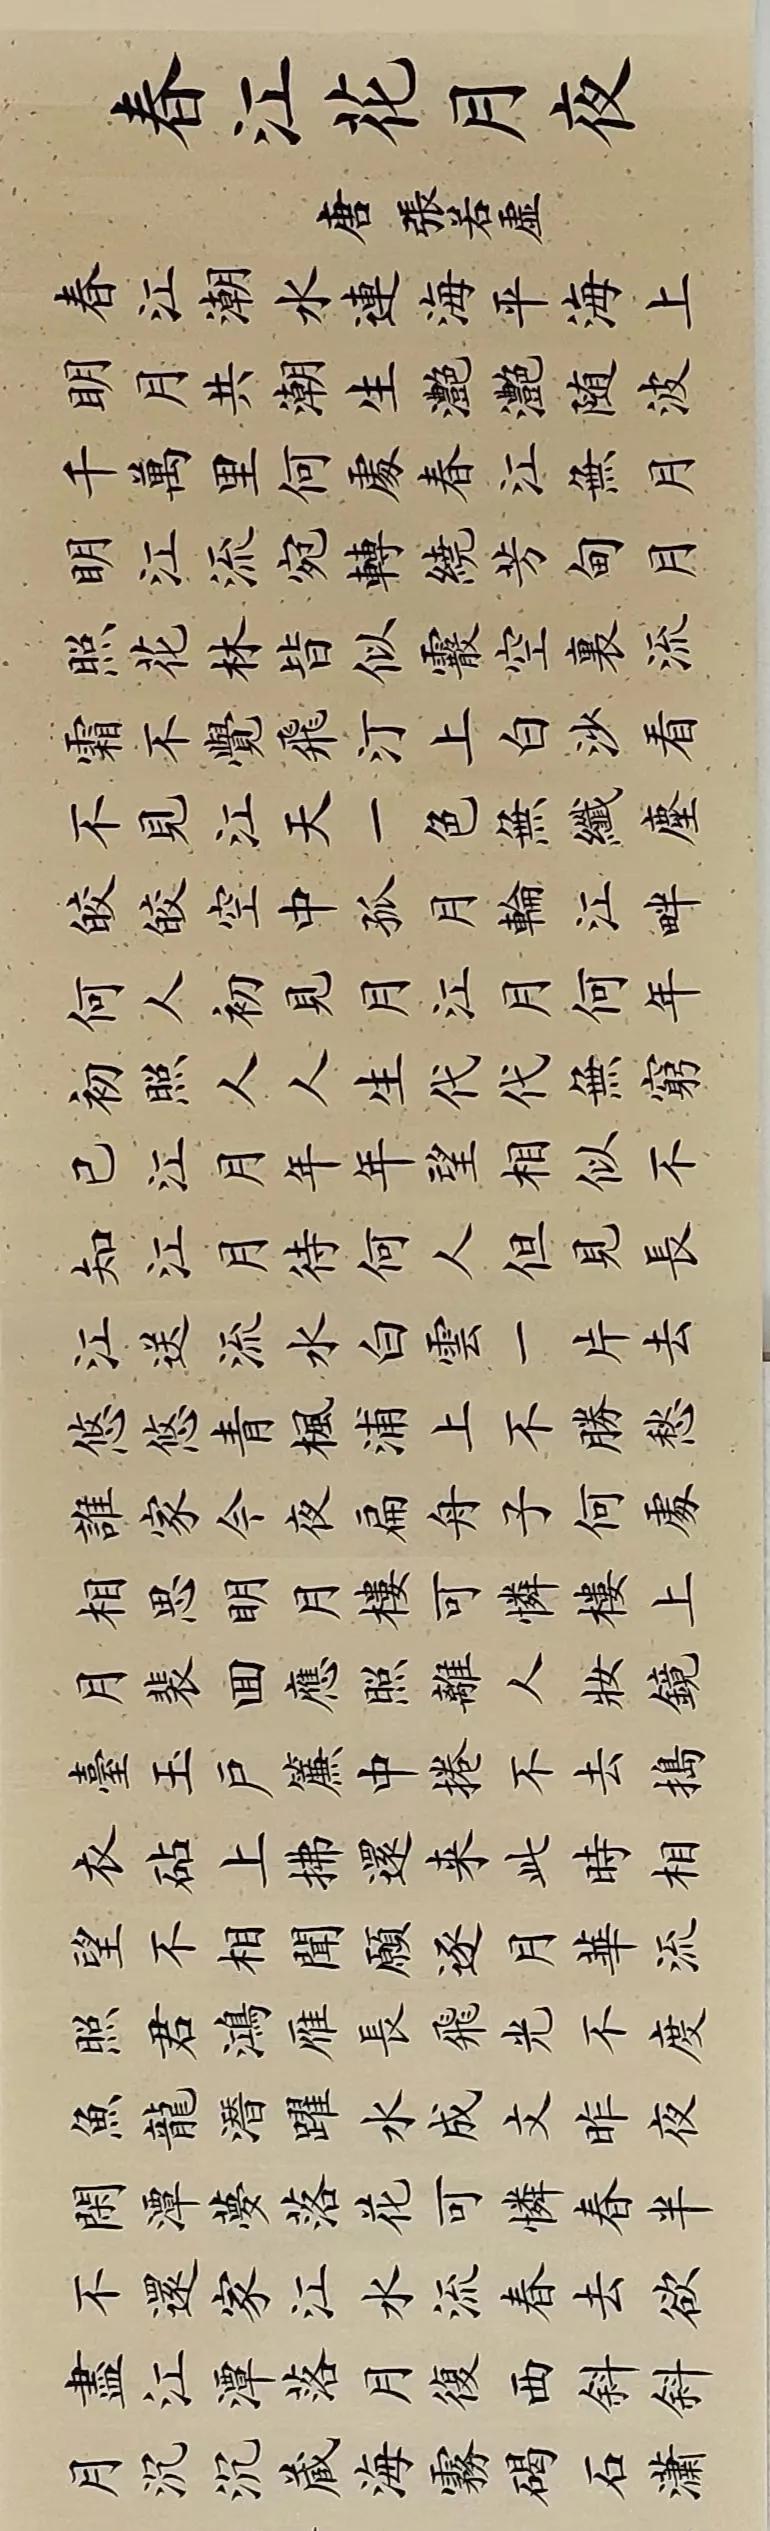 春江花月夜
唐 張若虛
春江潮水連海平海上
明月共潮生灔灔随波
千萬里何處春江無月
明江流宛轉繞芳甸月
照花林皆似霰空裏流
霜不覺飛汀上白沙看
不見江天一色無纖塵
皎皎空中孤月輪江畔
何人初見月江月何年
初照人人生代代無窮
已江月年年望相似不
知江月待何人但見長
江送流水白雲一片去
悠悠青楓浦上不勝愁
誰家今夜扁舟子何處
相思明月樓可憐樓上
月裴回應照離人妝鏡
臺玉戶簾中捲不去搗
衣砧上拂還来此時相
望不相聞願逐月華流
照君鴻雁長飛光不度
魚龍潛躍水成文昨夜
閑潭夢落花可憐春半
不還家江水流春去欲
盡江潭落月復西斜斜
月沉沉藏海霧碣石瀟